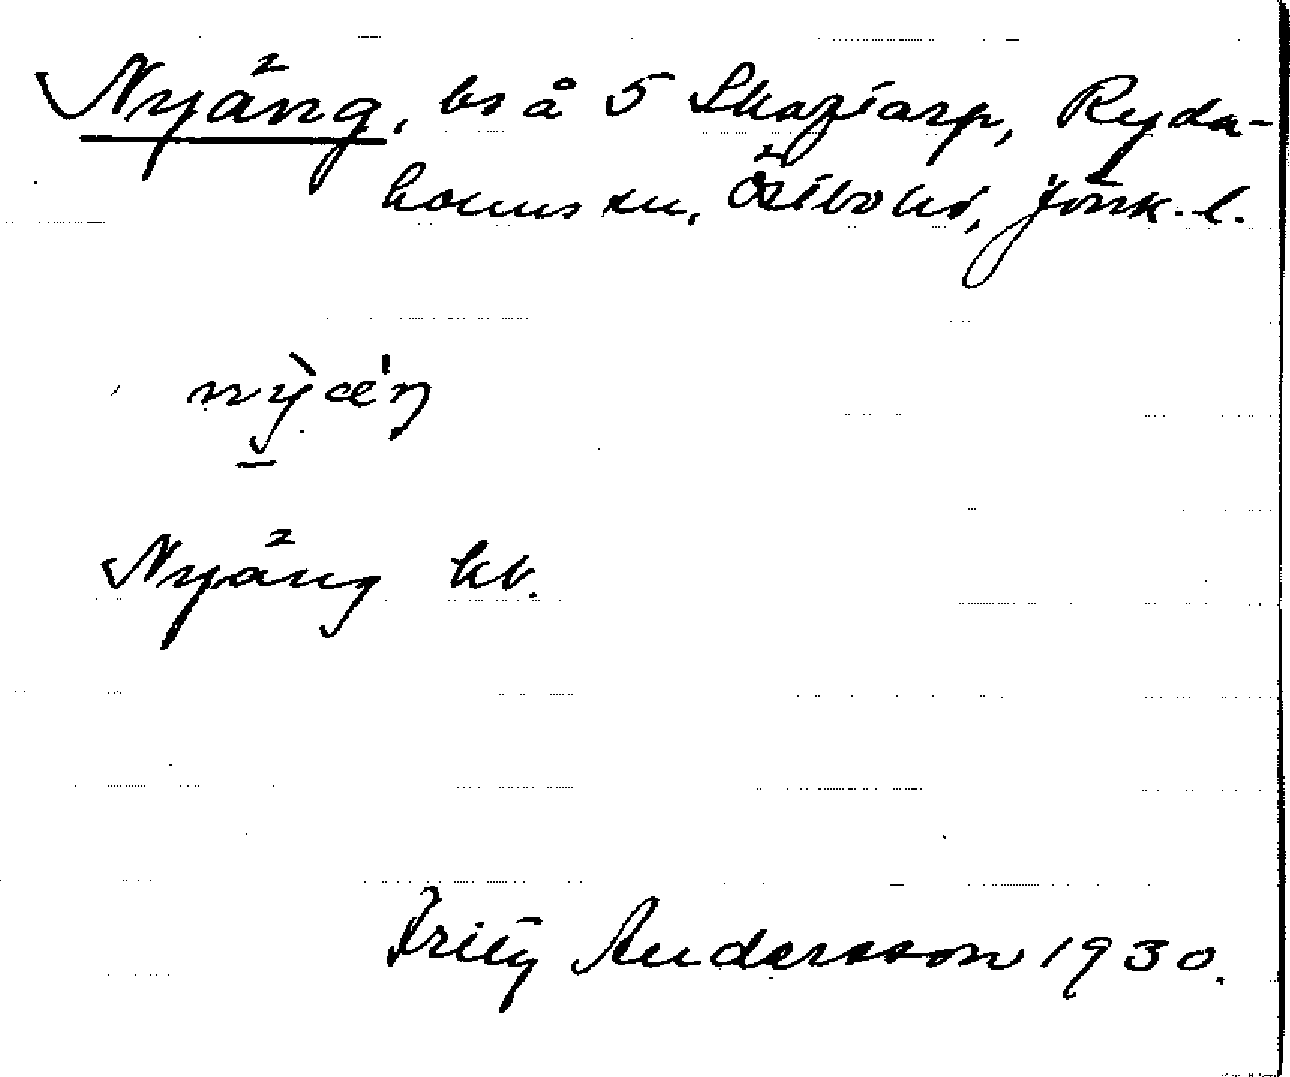 Nyäng, bs å 5 Skaftarp, Ryda-
holms sn, Östbo hd, Jönk. l.
nỳæ'ŋ
Nyäng kb.
Fritz Andersson 1930.